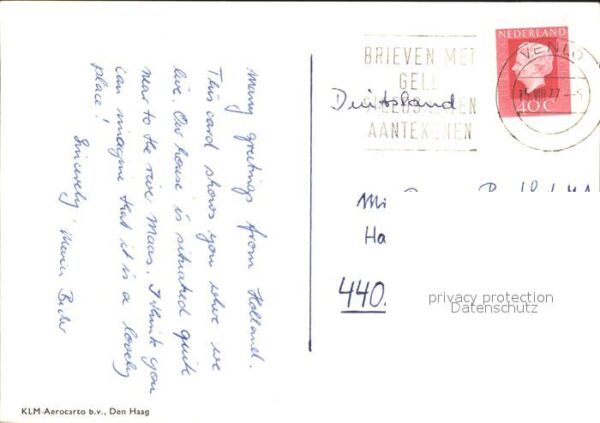 Many greetings from Holland.
This card shows you where we
live. Our house is situated quite
near to the rive Maas. I think you
can imagine that it is a lovely
place!
Sincerely,
KLM-Aerocarto b.v., Den Haag
BRIEVEN MET
GELD
AANTEKENEN
Duitsland
NEDERLAND
40c
VENLO
Mi
Ha
440.
privacy protection
Datenschutz